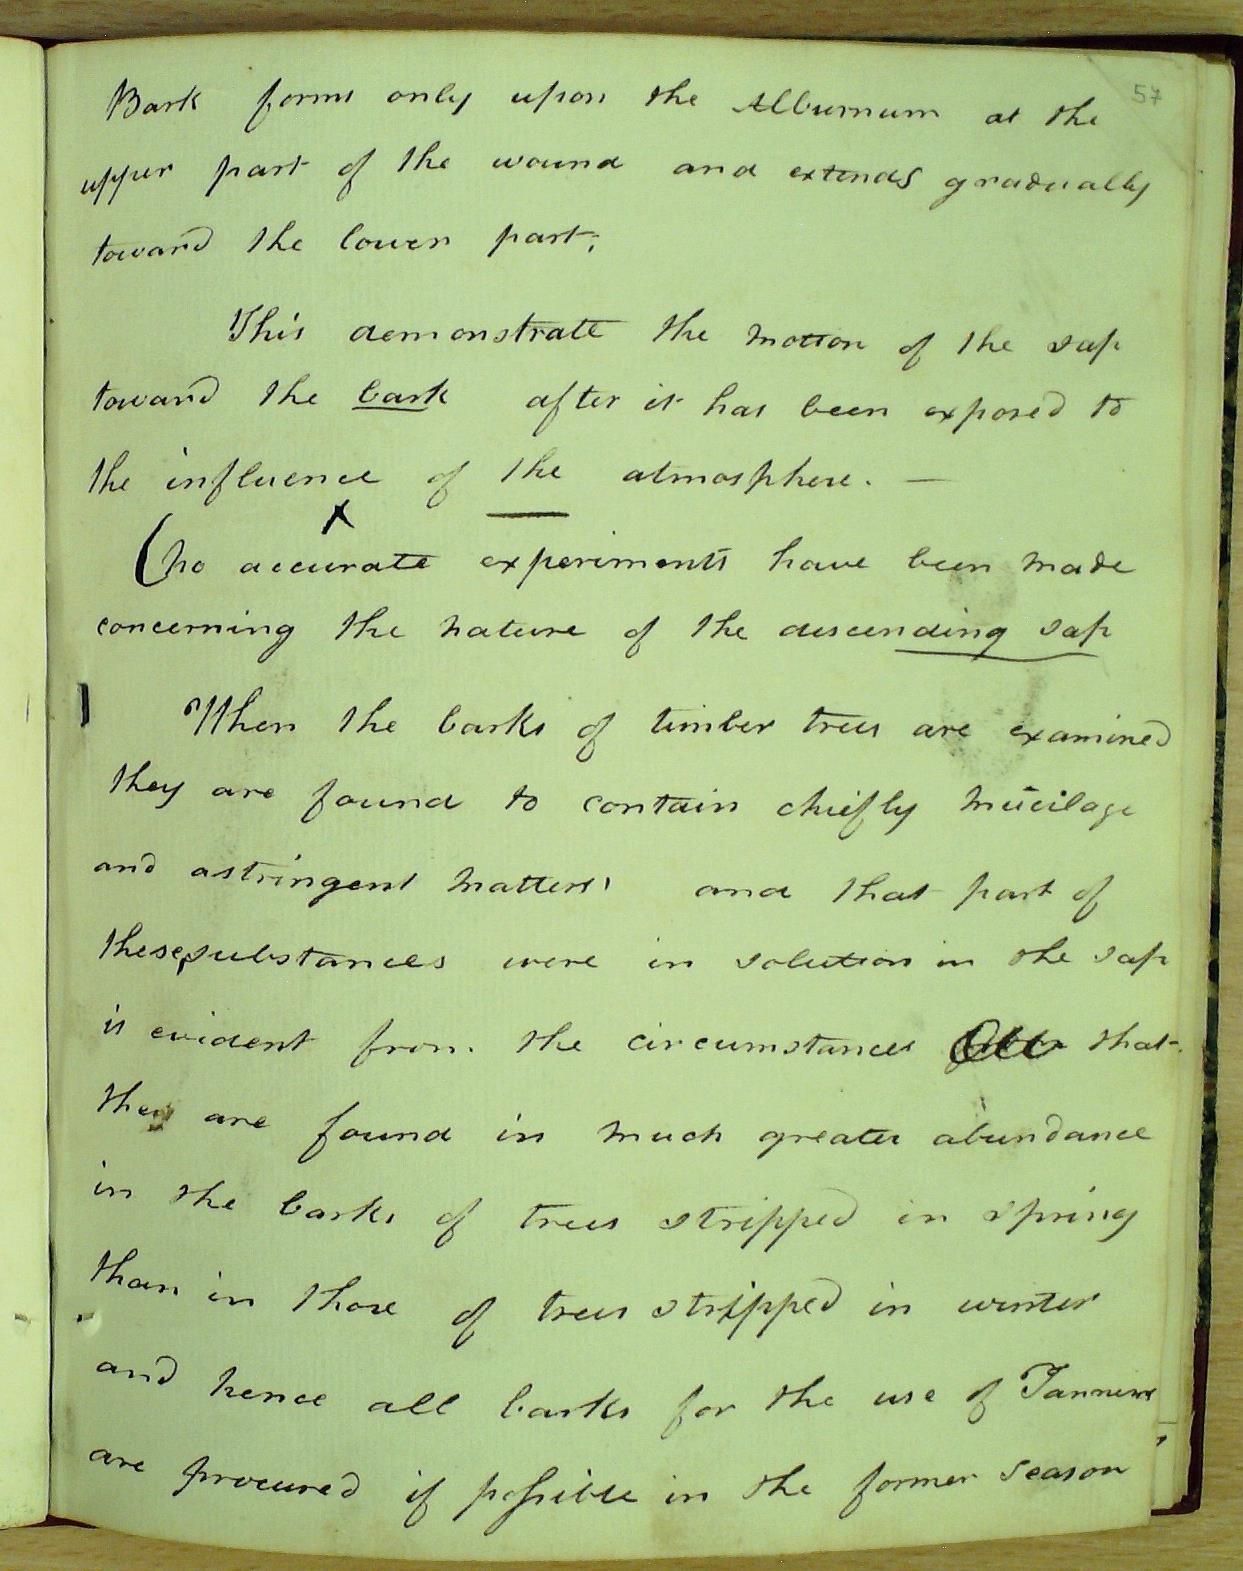 57
Bark forms only upon the Alburnum at the
upper part of the wound and extends gradually
toward the lower part;
This demonstrate the motion of the sap
toward the bark after it has been exposed to
the influence of the atmosphere. —
X
(no accurate experiments have been made
concerning the nature of the descending sap
When the barks of timber trees are examined
they are found to contain chiefly mucilage
and astringent matters and that part of
these substances were in solution in the sap
is evident from the circumstances that
they are found in much greater abundance
in the barks of trees stripped in spring
than in those of trees stripped in winter
and hence all barks for the use of Tanners
are procured if possible in the former season